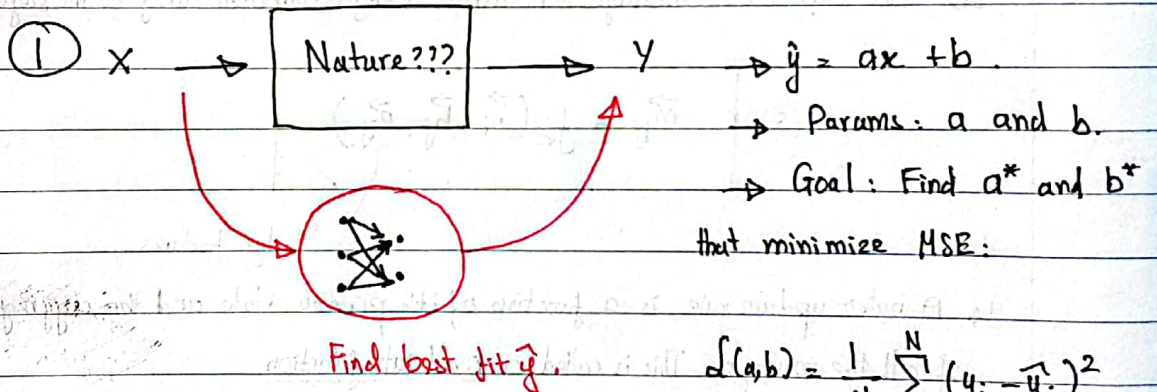 ① X → Nature??? → Y → ŷ = ax + b.
→ Params: a and b.
→ Goal: Find a* and b*
that minimize MSE:
Find best fit ŷ.
L(a,b) = 1 Σ N (yᵢ - ŷᵢ)²